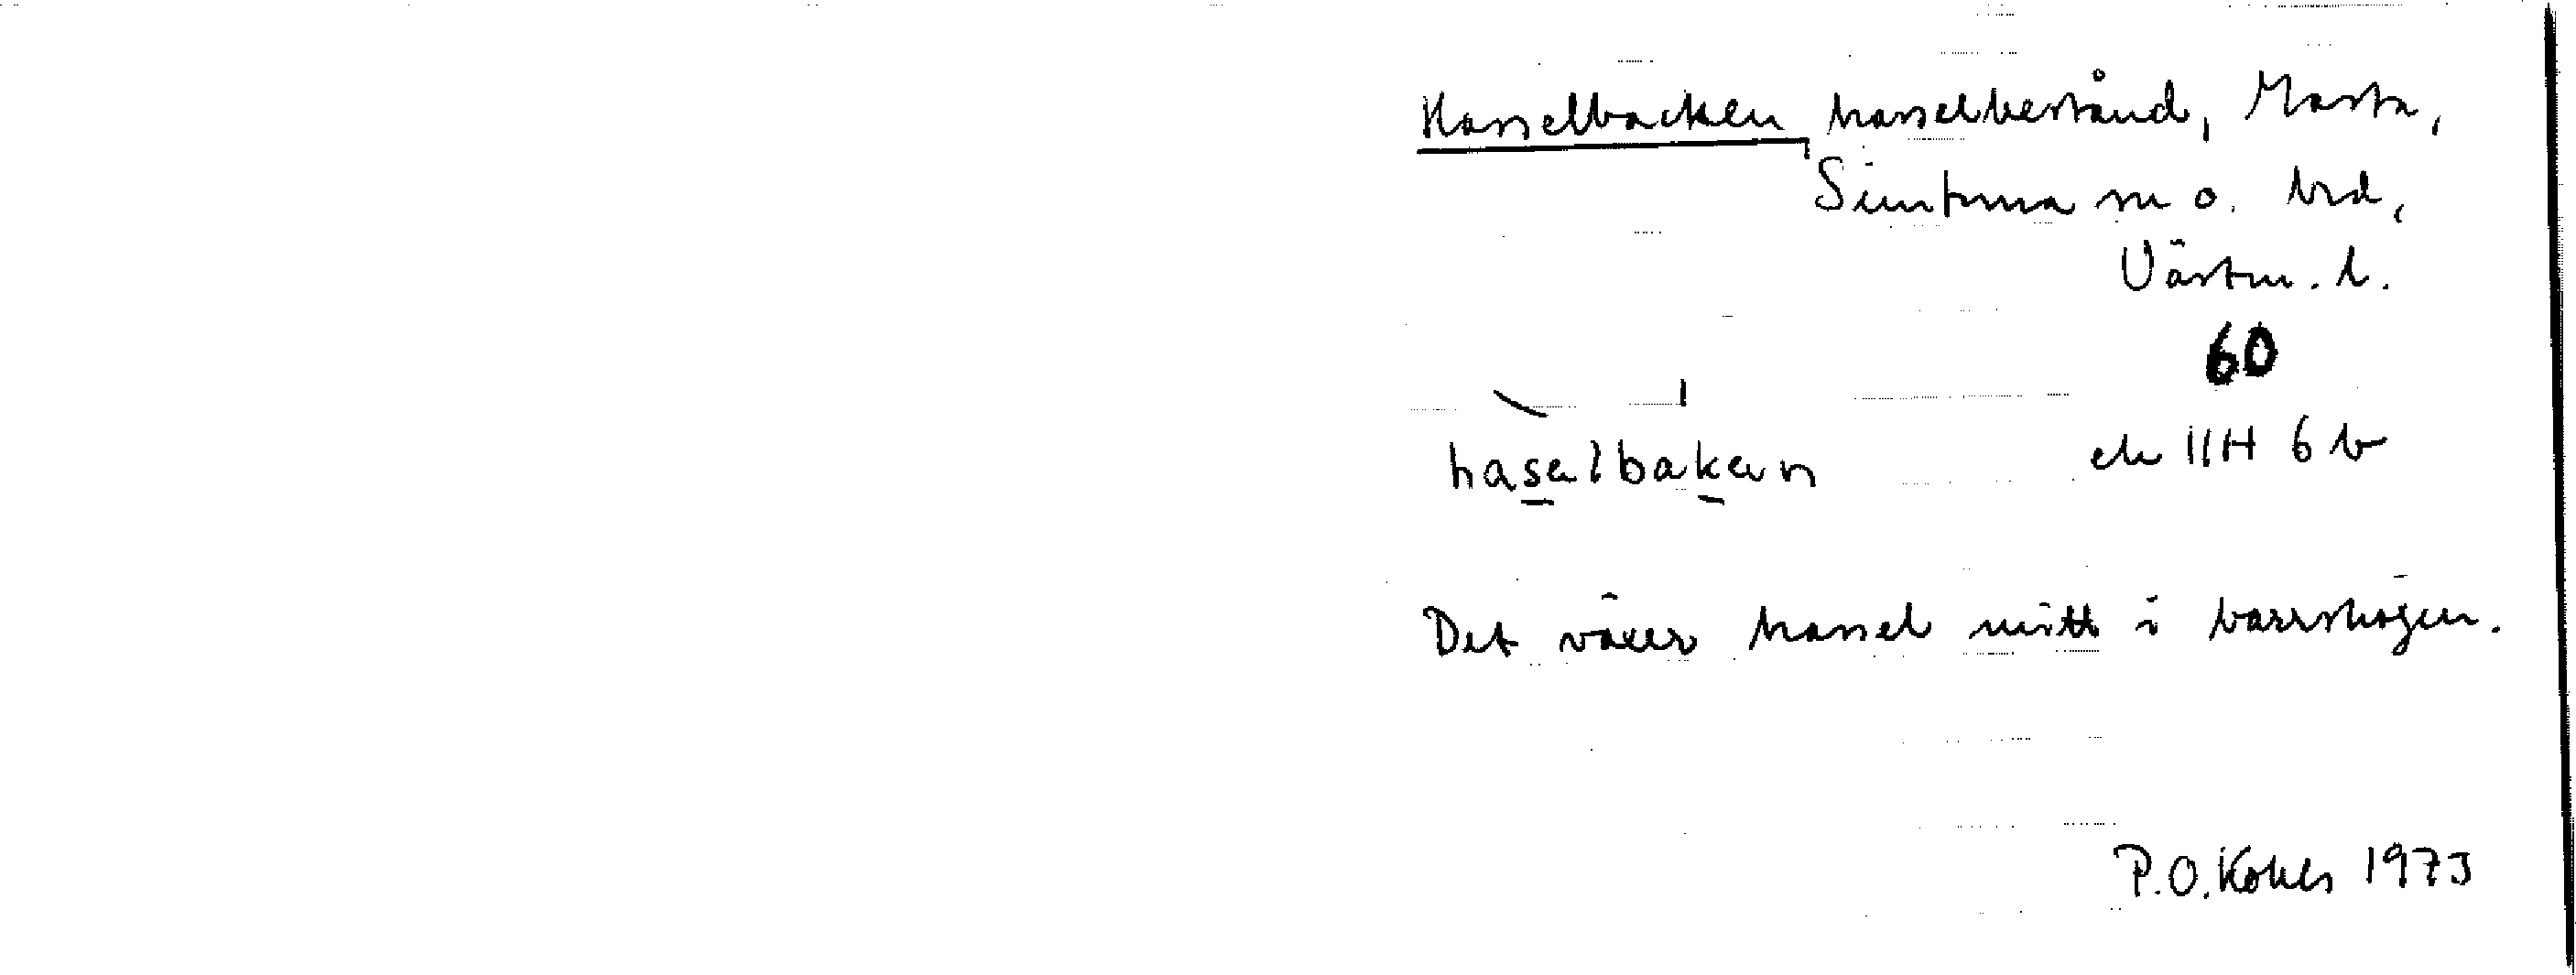 Hasselbacken, hasselbestånd, Masta,
Simtuna sn o. hd,
Västm. l.
60
haselbaken ek 11H 6 b
Det växer hassel mitt i barrskogen.
P.O. Kohls 1973